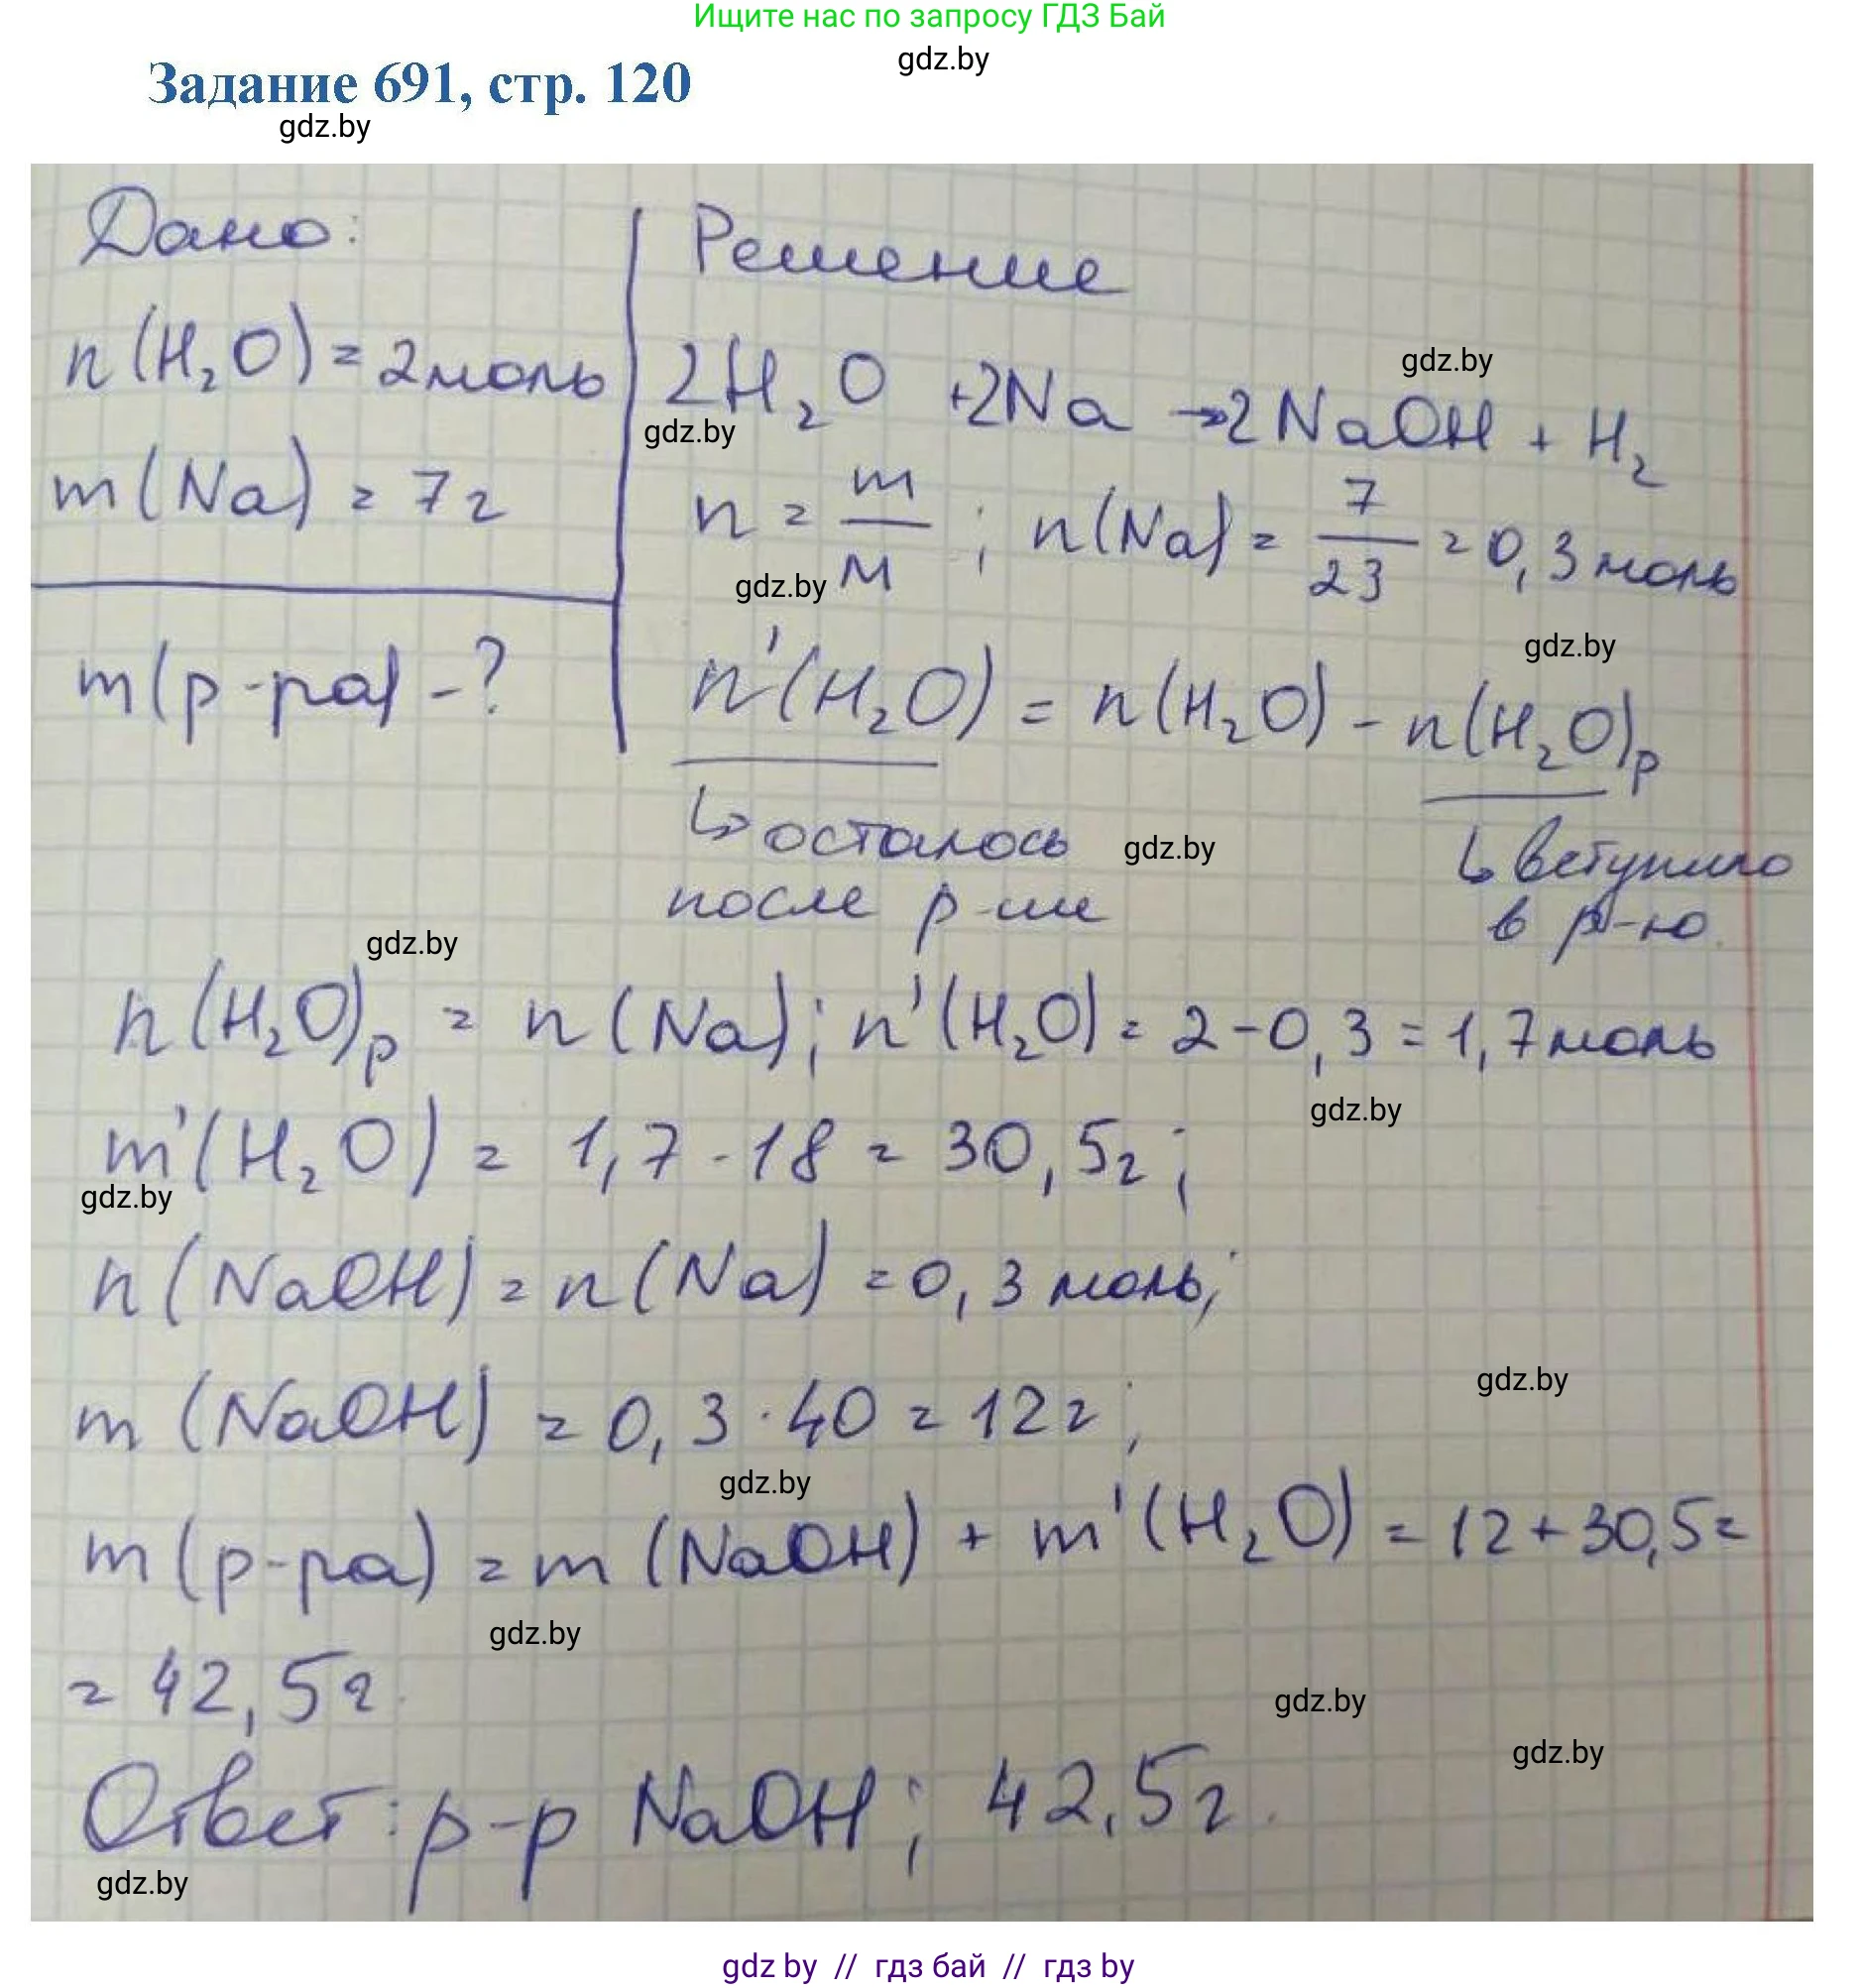 Ищите нас по запросу ГДЗ Бай
gdz.by
Задание 691, стр. 120
gdz.by
Дано:
Решение
n(H₂O) = 2 моль
2H₂O + 2Na → 2NaOH + H₂
gdz.by
gdz.by
m(Na) = 7г
n = m/M; n(Na) = 7/23 = 0,3 моль
gdz.by
gdz.by
m(р-ра) - ?
n'(H₂O) = n(H₂O) - n(H₂O)р
↳ осталось
после р-ии
gdz.by
↳ вступило
в р-ю.
gdz.by
n(H₂O)р = n(Na); n'(H₂O) = 2-0,3 = 1,7 моль
gdz.by
m'(H₂O) = 1,7 · 18 = 30,5г;
gdz.by
n(NaOH) = n(Na) = 0,3 моль;
gdz.by
m(NaOH) = 0,3 · 40 = 12г;
gdz.by
m(р-ра) = m(NaOH) + m'(H₂O) = 12+30,5 =
gdz.by
= 42,5г.
gdz.by
gdz.by
Ответ: р-р NaOH; 42,5г.
gdz.by
gdz by // гдз бай // гдз by